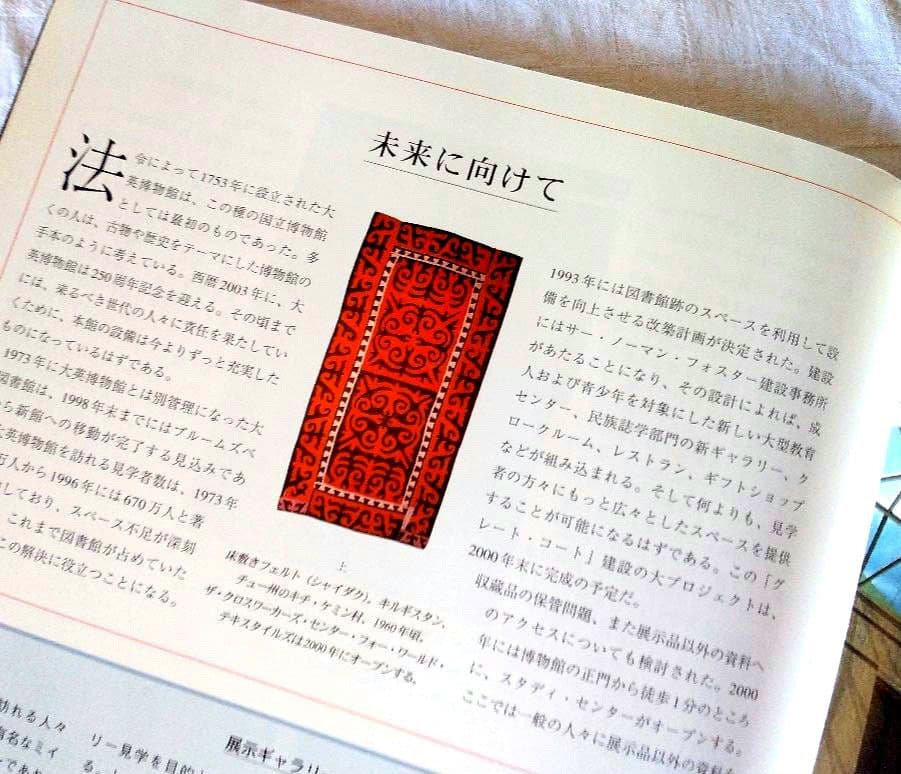 未来に向けて
法令によって1753年に設立された大
英博物館は、この種の国立博物館
としては最初のものであった。多
くの人は、古物や歴史をテーマにした博物館の
手本のように考えている。西暦2003年に、大
英博物館は250周年記念を迎える。その頃まで
には、来るべき世代の人々に責任を果たしてい
くために、本館の設備は今よりずっと充実した
ものになっているはずである。
1973年に大英博物館とは別管理になった大
図書館は、1998年末までにはブルームズベ
ら新館への移動が完了する見込みであ
大英博物館を訪れる見学者数は、1973年
万人から1996年には670万人と著
しており、スペース不足が深刻
これまで図書館が占めていた
この解決に役立つことになる。
上
床敷きフェルト（シャイダク）。キルギスタン、
チュー州のキチ・ケミン村。1960年頃。
ザ・クロスワーカーズ・センター・フォー・ワールド・
テキスタイルズは2000年にオープンする。
1993年には図書館跡のスペースを利用して設
備を向上させる改築計画が決定された。建設
にはサー・ノーマン・フォスター建設事務所
があたることになり、その設計によれば、成
人および青少年を対象にした新しい大型教育
センター、民族誌学部門の新ギャラリー、ク
ロークルーム、レストラン、ギフトショップ
などが組み込まれる。そして何よりも、見学
者の方々にもっと広々としたスペースを提供
することが可能になるはずである。この「グ
レート・コート」建設の大プロジェクトは、
2000年末に完成の予定だ。
収蔵品の保管問題、また展示品以外の資料へ
のアクセスについても検討された。2000
年には博物館の正門から徒歩1分のところ
に、スタディ・センターがオープンする。
ここでは一般の人々に展示品以外の資料
訪れる人々
有名なミイ
リー見学を目的
展示ギャラリ